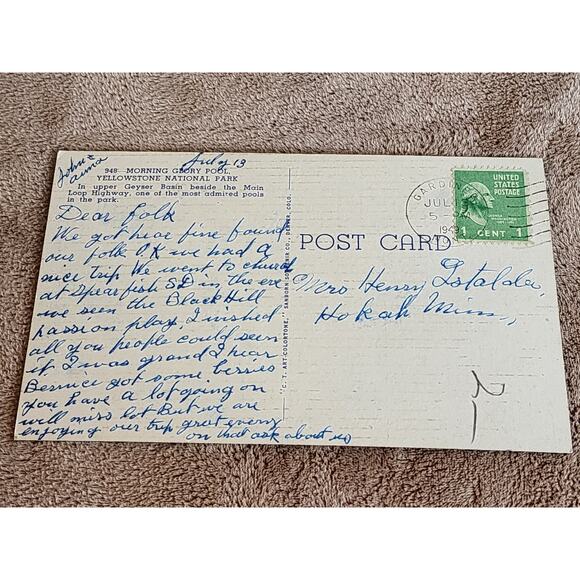 John &
Anna
July 13
948 MORNING GLORY POOL,
YELLOWSTONE NATIONAL PARK
In upper Geyser Basin beside the Main
Loop Highway, one of the most admired pools
in the park.
Dear folk
We got hear fine found
our folk O.K we had a
nice trip We went to church
at Spearfish S D in the eve
we seen the Black Hill
passion play, I wished
all you people could seen
it I was grand I hear
Bernice got some berries
you have a lot going on
will miss lot But we are
enjoying our trip great every
on that ask about us
"C. T. ART-COLORTONE," SANBORN SOUVENIR CO., DENVER, COLO.
POST CARD
GARDIN
JUL
5-
194
UNITED
STATES
POSTAGE
1 CENT 1
Mrs Henry
Hokah Minn,